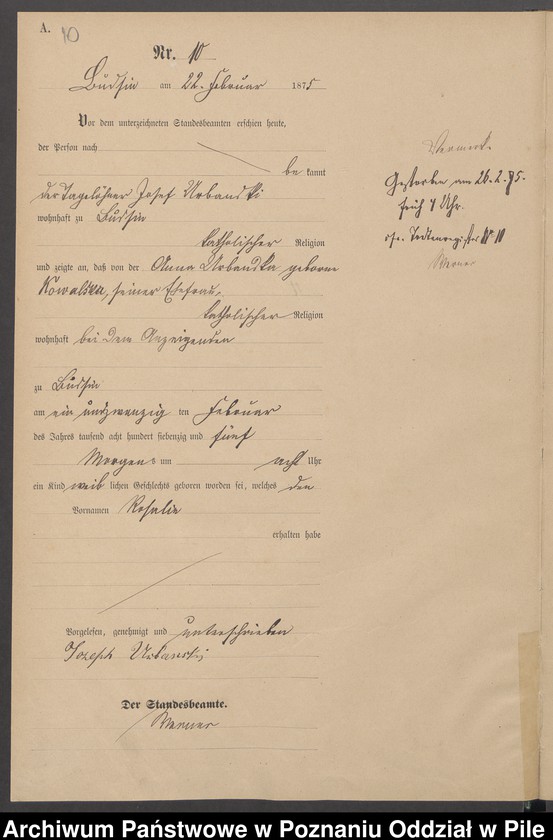 A.
10
Nr. 10
Budsin am 22. Februar 1875
Vor dem unterzeichneten Standesbeamten erschien heute,
der Person nach
be kannt
der Tagelöhner Josef Urbanski
wohnhaft zu Budsin
katholischer Religion
und zeigte an, daß von der Anna Urbanska geborne
Kowalska, seiner Ehefrau,
katholischer Religion
wohnhaft bei dem Anzeigenden
zu Budsin
am ein und zwanzig ten Februar
des Jahres tausend acht hundert siebenzig und fünf
Morgens um acht Uhr
ein Kind weib lichen Geschlechts geboren worden sei, welches den
Vornamen Rosalie
erhalten habe
Vorgelesen, genehmigt und unterschrieben
Jozeph Urbanski
Der Standesbeamte.
Werner
Vermerk.
Gestorben am 26.2.75.
früh 4 Uhr.
cfr. Todtenregister N 10
Werner
Archiwum Państwowe w Poznaniu Oddział w Pile